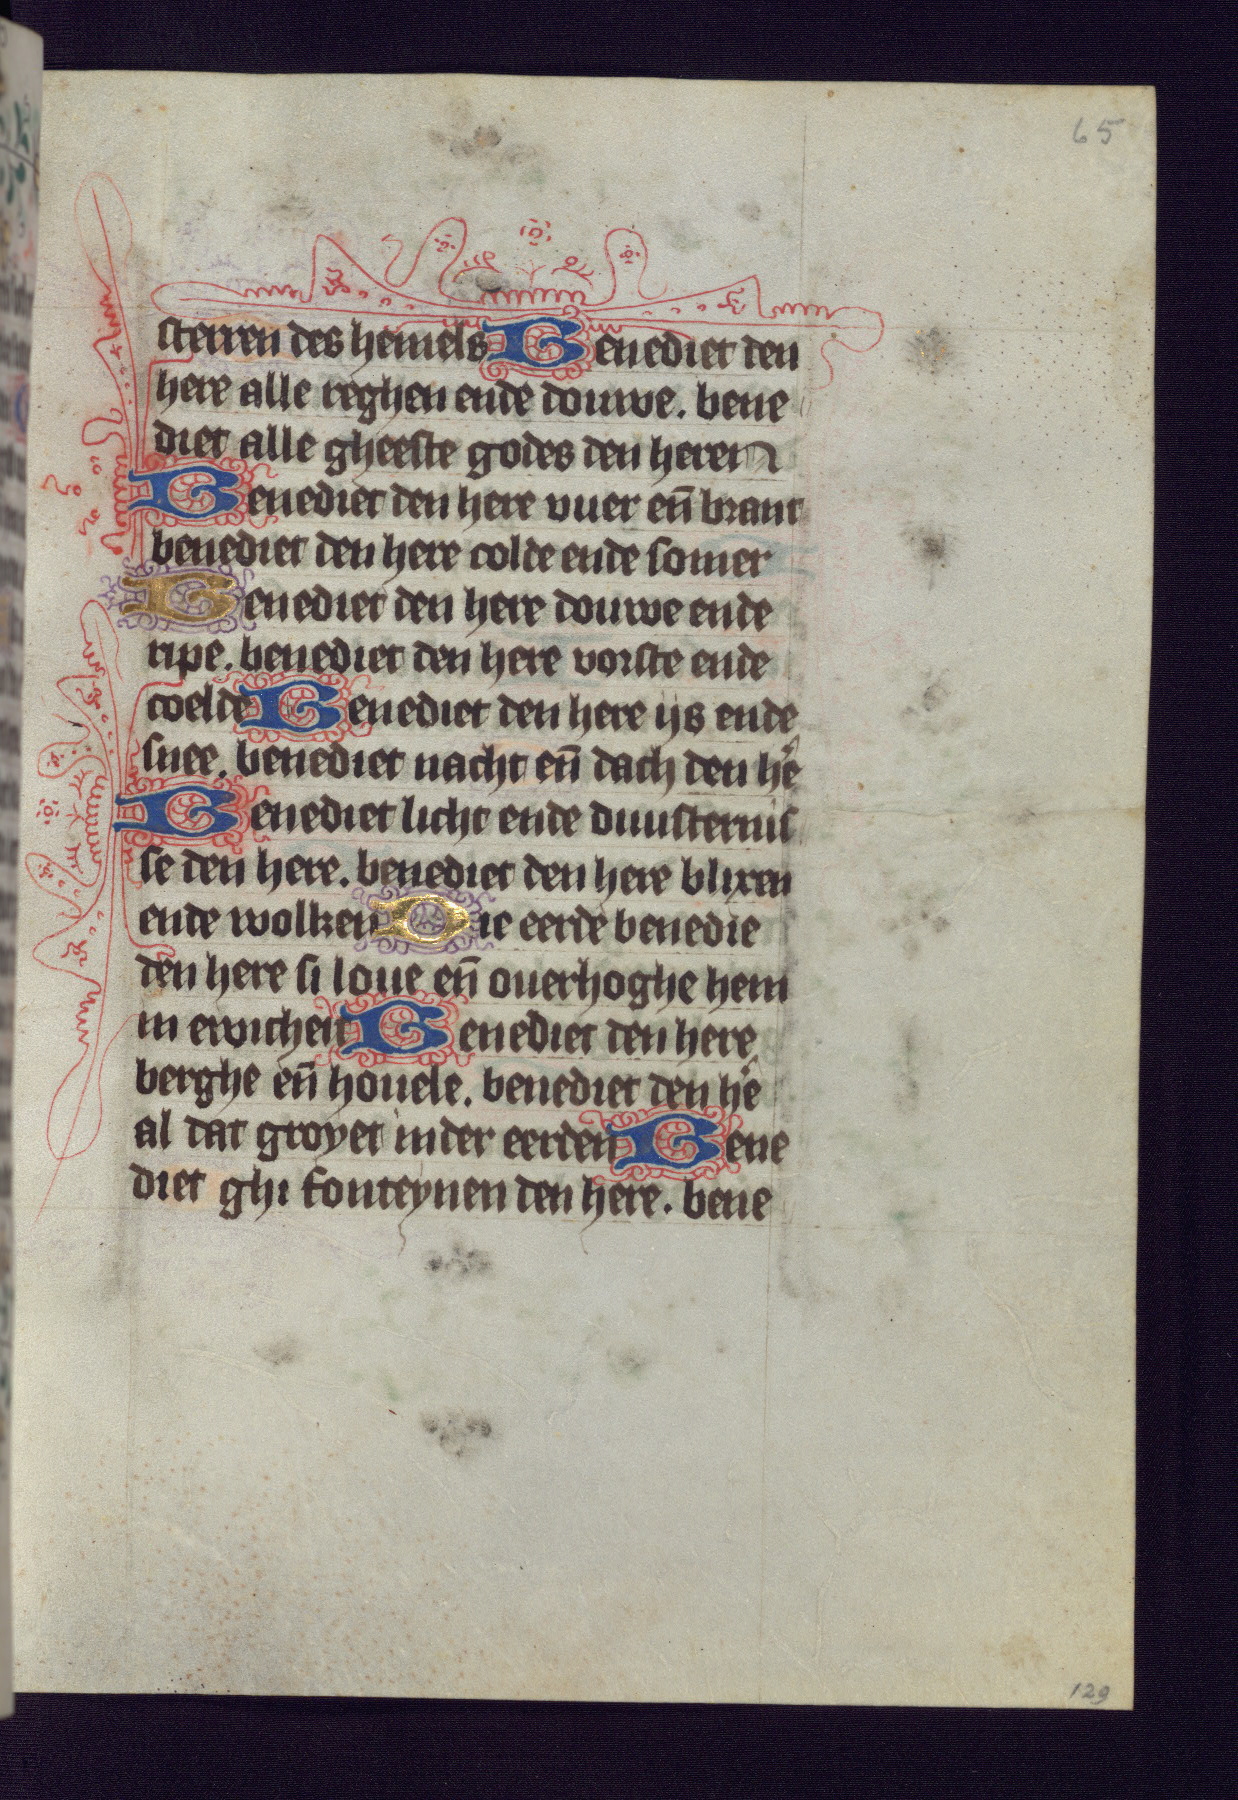 65
sterren des hemels Benediet den
here alle reghen ende douwe. bene
diet alle gheeste godes den heren
Benediet den here vuer en̄ brant
benediet den here colde ende somer
Benediet den here douwe ende
ripe. benediet den here vorste ende
coelde Benediet den here ijs ende
snee. benediet nacht en̄ dach den he᷎
Benediet licht ende duusternis
se den here. benediet den here blixen
ende wolken Die eerde benedie
den here si loue en̄ ouerhoghe hem
in ewicheit Benediet den here
berghe en̄ houele. benediet den he᷎
al dat groyet inder eerden Bene
diet ghi fonteynen den here. bene
129